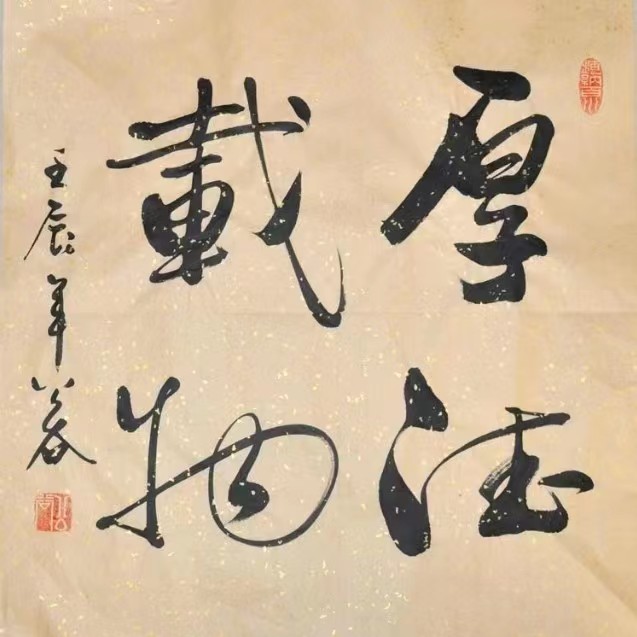 厚德
載物
壬辰年